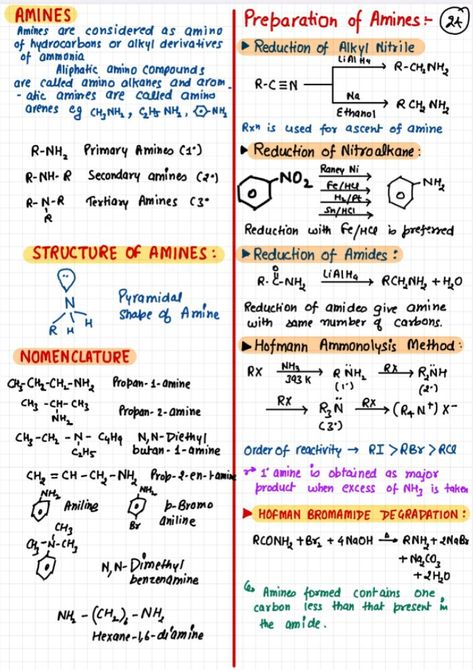 AMINES
Amines are considered as amino
of hydrocarbons or alkyl derivatives
of ammonia
Aliphatic amino compounds
are called amino alkanes and arom-
-atic amines are called amino
arenes eg CH₃NH₂, C₂H₅NH₂, -NH₂
R-NH₂ Primary Amines (1°)
R-NH-R Secondary amines (2°)
R-N-R Tertiary Amines (3°
R
STRUCTURE OF AMINES:
N
R H H
Pyramidal
shape of Amine
NOMENCLATURE
CH₃-CH₂-CH₂-NH₂ Propan-1-amine
CH₃-CH-CH₃ Propan-2-amine
NH₂
CH₃-CH₂-N-C₄H₉ N,N-Diethyl
C₂H₅ butan-1-amine
CH₂=CH-CH₂-NH₂ Prop-2-en-1-amine
NH₂ Aniline
NH₂ p-Bromo
Br aniline
CH₃
CH₃-N-CH₃
N,N-Dimethyl
benzenamine
NH₂-(CH₂)₆-NH₂
Hexane-1,6-diamine
Preparation of Amines:-
Reduction of Alkyl Nitrile
R-C≡N
LiAlH₄ R-CH₂NH₂
Na R CH₂NH₂
Ethanol
Rxⁿ is used for ascent of amine
Reduction of Nitroalkane:
NO₂
Raney Ni
Fe/HCl
H₂/Pt
Sn/HCl
NH₂
Reduction with Fe/HCl is preferred
Reduction of Amides:
O
R-C-NH₂ LiAlH₄ → RCH₂NH₂ + H₂O
Reduction of amides give amine
with same number of carbons.
Hofmann Ammonolysis Method:
RX NH₃ → R N̈H₂ RX → R₂N̈H
393 K (1°) (2°)
RX → R₃N̈ RX → (R₄N⁺) X⁻
(3°)
Order of reactivity → RI > RBr > RCl
1° amine is obtained as major
product when excess of NH₃ is taken
HOFMAN BROMAMIDE DEGRADATION:
RCONH₂ + Br₂ + 4NaOH Δ → RNH₂ + 2NaBr
+ Na₂CO₃
+ 2H₂O
Amines formed contains one
carbon less than that present in
the amide.